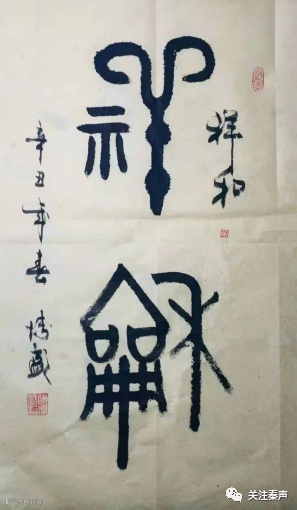 祥龢
祥和
辛丑年春
关注秦声